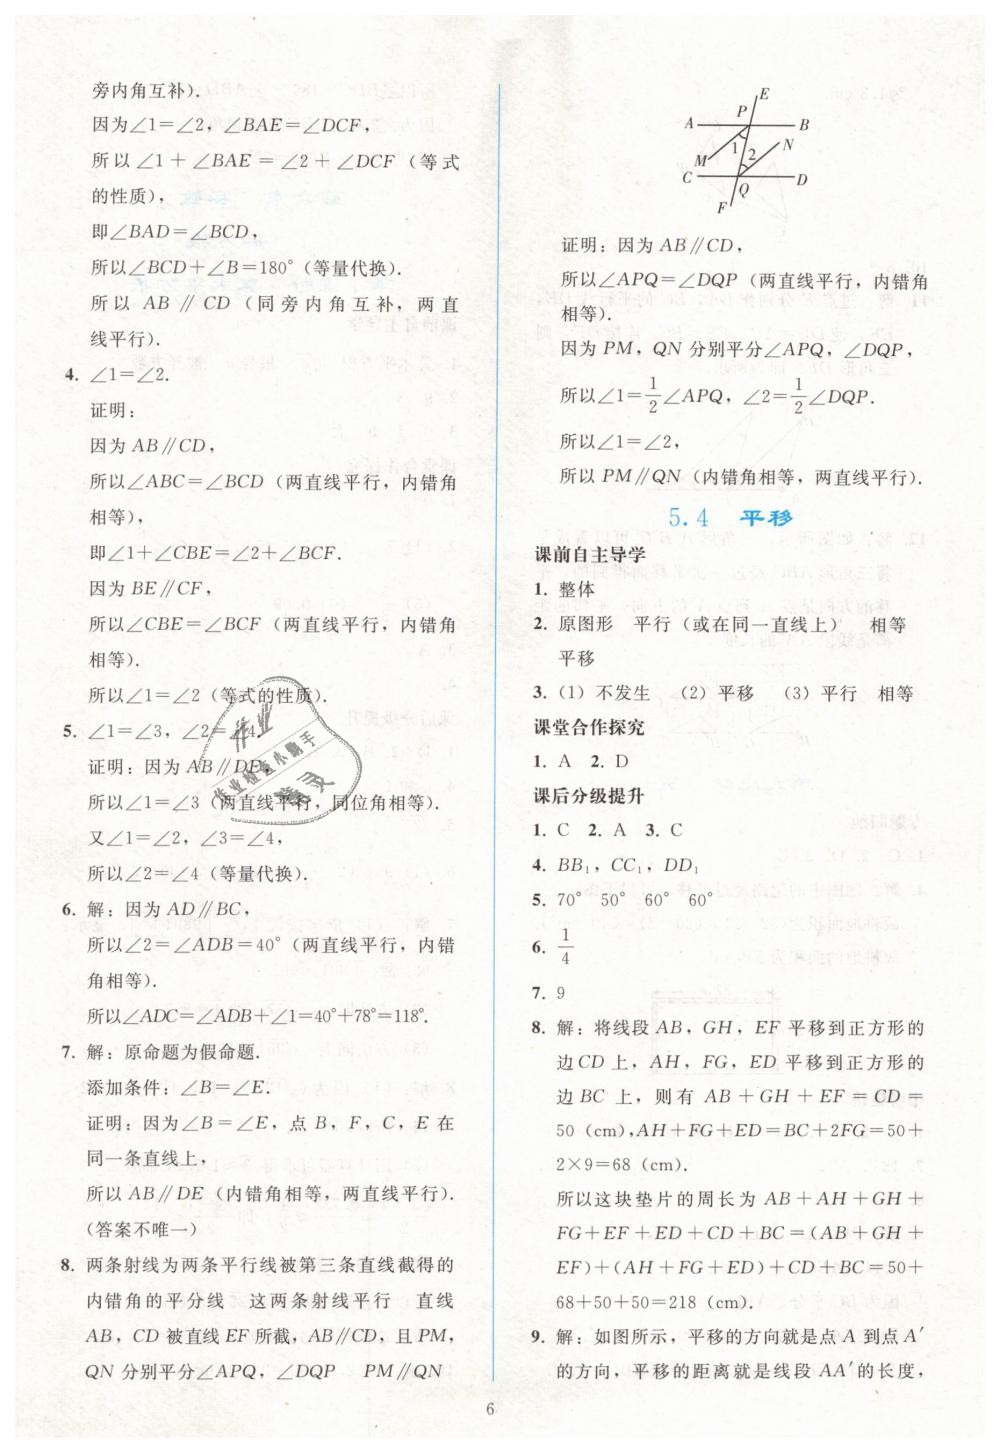 旁内角互补).
因为∠1=∠2，∠BAE=∠DCF，
所以∠1+∠BAE=∠2+∠DCF（等式
的性质)，
即∠BAD=∠BCD，
所以∠BCD+∠B=180°（等量代换).
所以 AB∥CD（同旁内角互补，两直
线平行).
4. ∠1=∠2.
证明：
因为 AB∥CD，
所以∠ABC=∠BCD（两直线平行，内错角
相等)，
即∠1+∠CBE=∠2+∠BCF.
因为 BE∥CF，
所以∠CBE=∠BCF（两直线平行，内错角
相等).
所以∠1=∠2（等式的性质).
5. ∠1=∠3，∠2=∠4.
证明：因为 AB∥DE，
所以∠1=∠3（两直线平行，同位角相等).
又∠1=∠2，∠3=∠4，
所以∠2=∠4（等量代换).
6. 解：因为 AD∥BC，
所以∠2=∠ADB=40°（两直线平行，内错
角相等).
所以∠ADC=∠ADB+∠1=40°+78°=118°.
7. 解：原命题为假命题.
添加条件：∠B=∠E.
证明：因为∠B=∠E，点 B，F，C，E 在
同一条直线上，
所以 AB∥DE（内错角相等，两直线平行).
(答案不唯一)
8. 两条射线为两条平行线被第三条直线截得的
内错角的平分线 这两条射线平行 直线
AB，CD 被直线 EF 所截，AB∥CD，且 PM，
QN 分别平分∠APQ，∠DQP PM∥QN
E
P
A B
1 N
M 2
C D
Q
F
证明：因为 AB∥CD，
所以∠APQ=∠DQP（两直线平行，内错角
相等).
因为 PM，QN 分别平分∠APQ，∠DQP，
所以∠1=1/2∠APQ，∠2=1/2∠DQP.
所以∠1=∠2，
所以 PM∥QN（内错角相等，两直线平行).
5.4 平移
课前自主导学
1. 整体
2. 原图形 平行（或在同一直线上） 相等
平移
3. (1) 不发生 (2) 平移 (3) 平行 相等
课堂合作探究
1. A 2. D
课后分级提升
1. C 2. A 3. C
4. BB₁，CC₁，DD₁
5. 70° 50° 60° 60°
6. 1/4
7. 9
8. 解：将线段 AB，GH，EF 平移到正方形的
边 CD 上，AH，FG，ED 平移到正方形的
边 BC 上，则有 AB+GH+EF=CD=
50 (cm),AH+FG+ED=BC+2FG=50+
2×9=68 (cm).
所以这块垫片的周长为 AB+AH+GH+
FG+EF+ED+CD+BC=(AB+GH+
EF)+(AH+FG+ED)+CD+BC=50+
68+50+50=218 (cm).
9. 解：如图所示，平移的方向就是点 A 到点 A′
的方向，平移的距离就是线段 AA′的长度，
作业
作业检查小助手
精灵
6